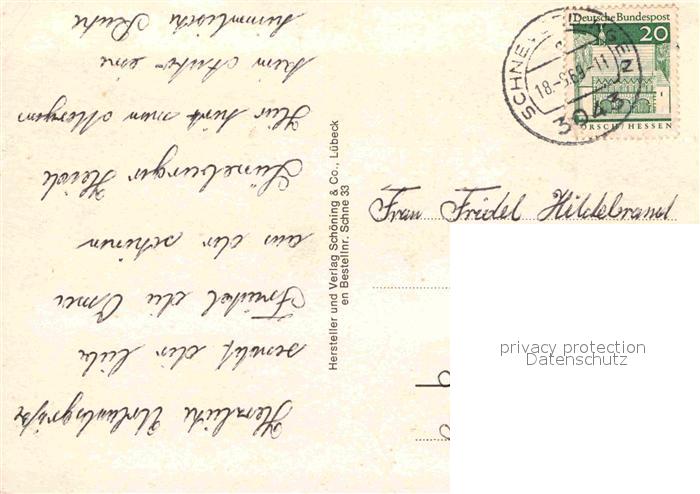 Deutsche Bundespost
20
LORSCH/HESSEN
SCHNEVERDINGEN
18.-9.69-11
3043
Frau Fridel Hildebrand
Hersteller und Verlag Schöning & Co., Lübeck
en Bestellnr. Schne 33
Herzliche Urlaubsgrüße
sendet dir liebe
Friedel die Oma
aus der schönen
Lüneburger Heide
Hier hört man Morgens
kein Auto - eine
himmlische Ruhe
privacy protection
Datenschutz